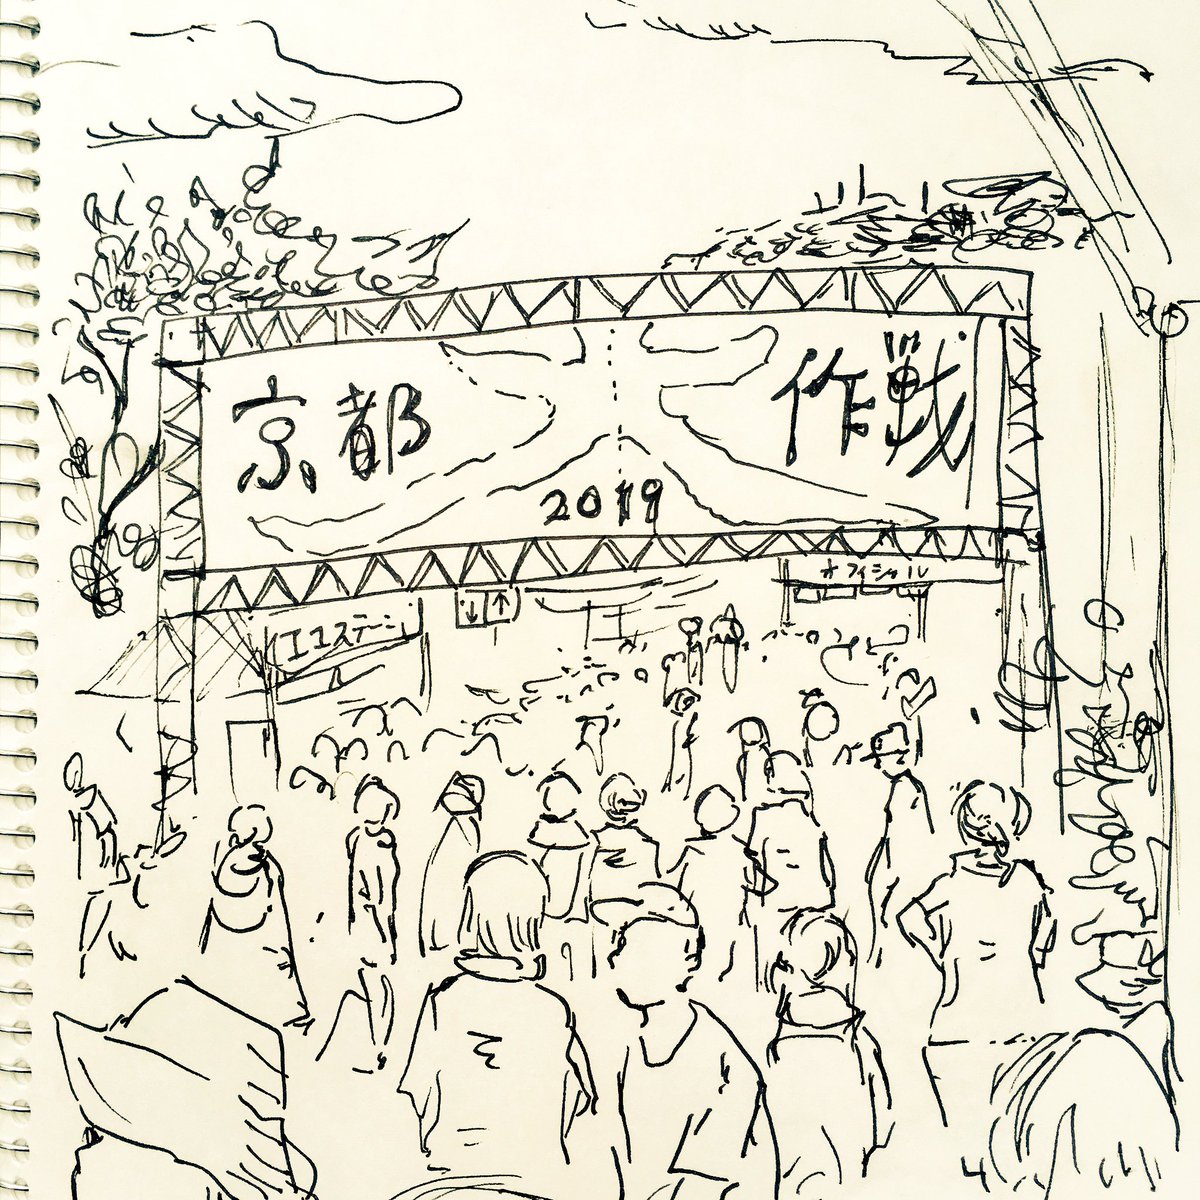 京都 作戦
2019
オフィシャル
エコステーション